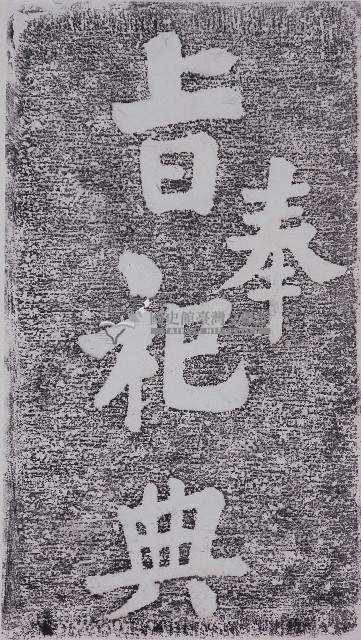 奉
旨祀典